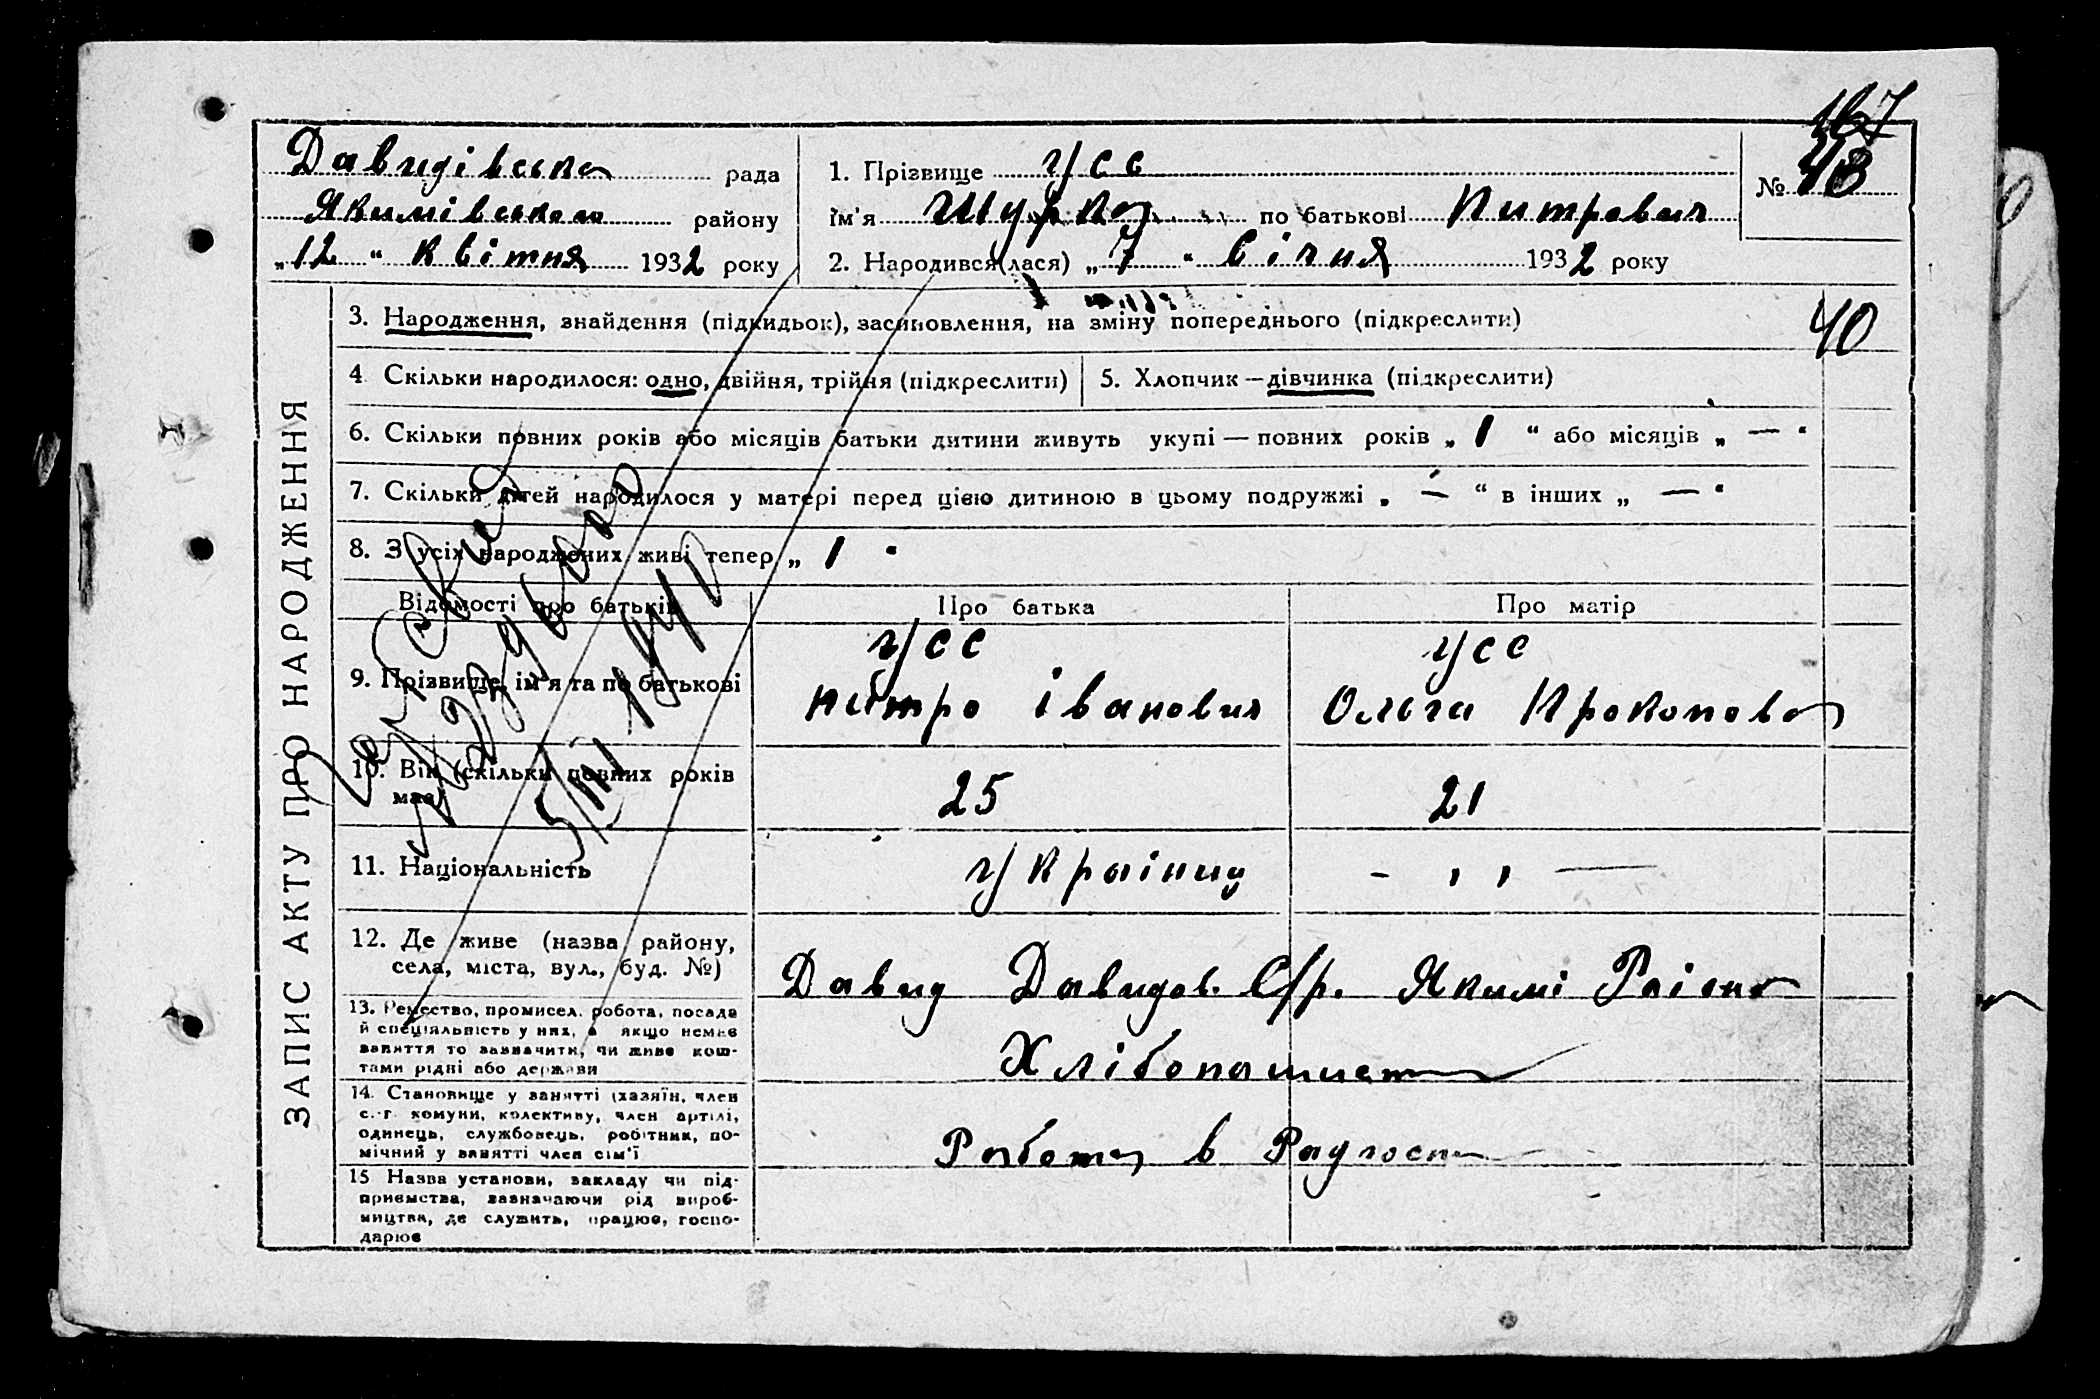 167
Давидівська рада
Якимівського району
„12" квітня 1932 року
1. Прізвище Усс
Ім'я Шурка по батькові Питрович
2. Народився(лася) „7" січня 1932 року
№ 48
40
ЗАПИС АКТУ ПРО НАРОДЖЕННЯ
3. Народження, знайдення (підкидьок), засиновлення, на зміну попереднього (підкреслити)
4. Скільки народилося: одно, двійня, трійня (підкреслити)
5. Хлопчик — дівчинка (підкреслити)
6. Скільки повних років або місяців батьки дитини живуть укупі — повних років „ 1 " або місяців „ — "
7. Скільки дітей народилося у матері перед цією дитиною в цьому подружжі „ — " в інших „ — "
8. З усіх народжених живі тепер „ 1 "
Відомості про батьків
Про батька
Про матір
9. Прізвище, ім'я та по батькові
Усс
Питро Іванович
Усс
Ольга Прокопова
10. Вік (скільки повних років має)
25
21
11. Національність
Украінці
- ,, —
12. Де живе (назва району, села, міста, вул., буд. №)
Давид Давидов. С/р. Якимі Раіона
13. Ремество, промисел, робота, посада й спеціяльність у них, а якщо немає заняття то зазначити, чи живе коштами рідні або держави
Хлібопашист
14. Становище у занятті (хазяїн, член с.-г. комуни, колективу, член артілі, одинець, службовець, робітник, помічний у занятті член сім'ї
Работа в Радгоспі
15 Назва установи, закладу чи підприємства, зазначаючи рід виробництва, де служить, працює, господарює